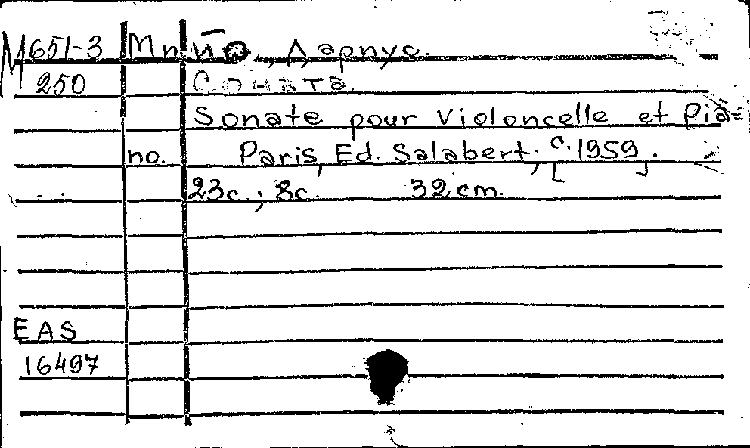 М651-3 Мийо, Дариус.
250 Соната.
Sonate pour Violoncelle et Pia-
no. Paris, Ed. Salabert, [c. 1959].
23c.; 8c. 32cm.
EAS
16497